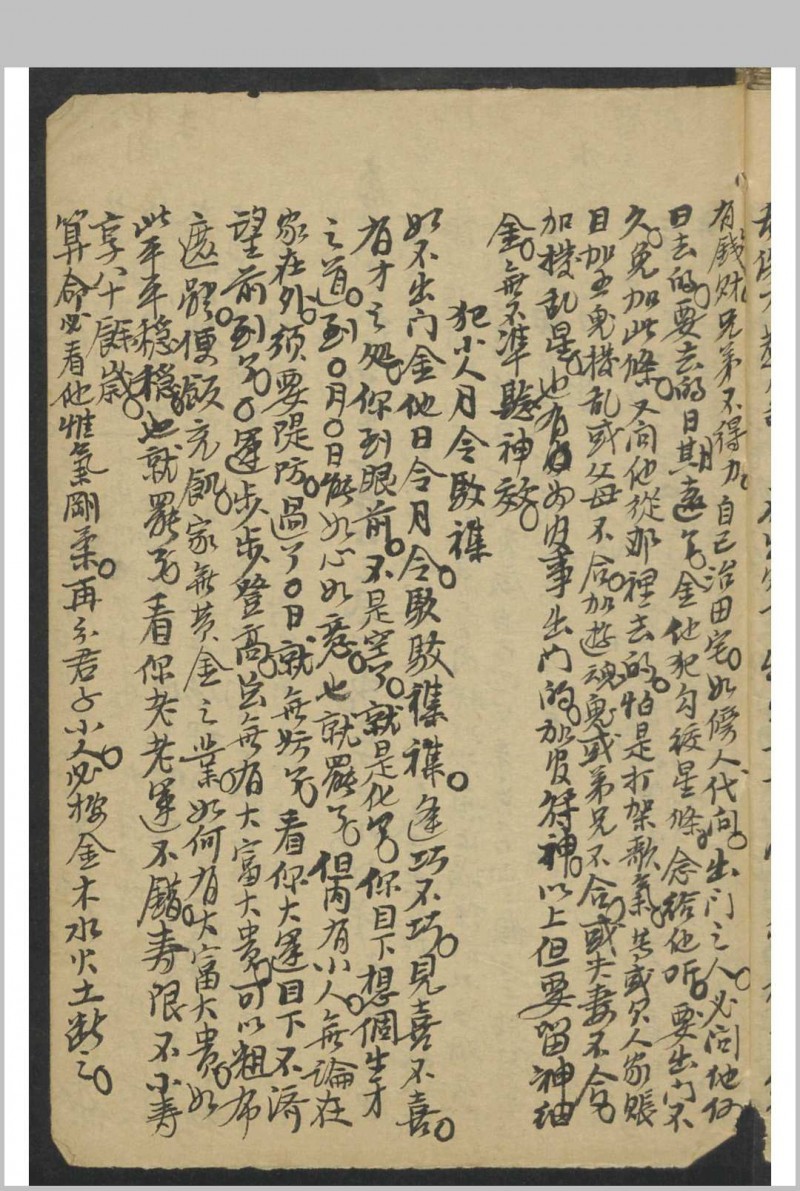 有錢財兄弟不得力自己治田宅。如傍人代問。出门之人。必问他何
日去的。要去的日期遠了。金他犯勾絞星條。念給他听。要出门不
久。免加此條。又问他從那裡去的。怕是打架歌氣。共或欠人家賬
目加五鬼撥乱或父母不合。加遊魂鬼或弟兄不合。或夫妻不合。
加撥乱星。也有因為官事出门的。加官符神。以上但要留神细
金。無不準驗神效。
犯小人月令駁襍
如不出门金他日令月令駁駁襍襍。逢巧不巧。見喜不喜。
有才之処。你到眼前。不是空了。就是化了。你目下想個生才
之道。到〇月〇日能如心如意。也就罷了。但內有小人。無論在
家在外。须要隄防。過了〇日就無妨了。看你大運目下不濟
望前到了。〇運步步登高。並無有大富大貴。可以粗布
遮體。便飯充飢。家無黄金之業。如何有大富大貴。如
此平平穩穩。也就罷了。看你老老運不錯。寿限不小寿
享八十餘歲。
算命必看他惟氣剛柔。再分君子小人。必按金木水火土断之。